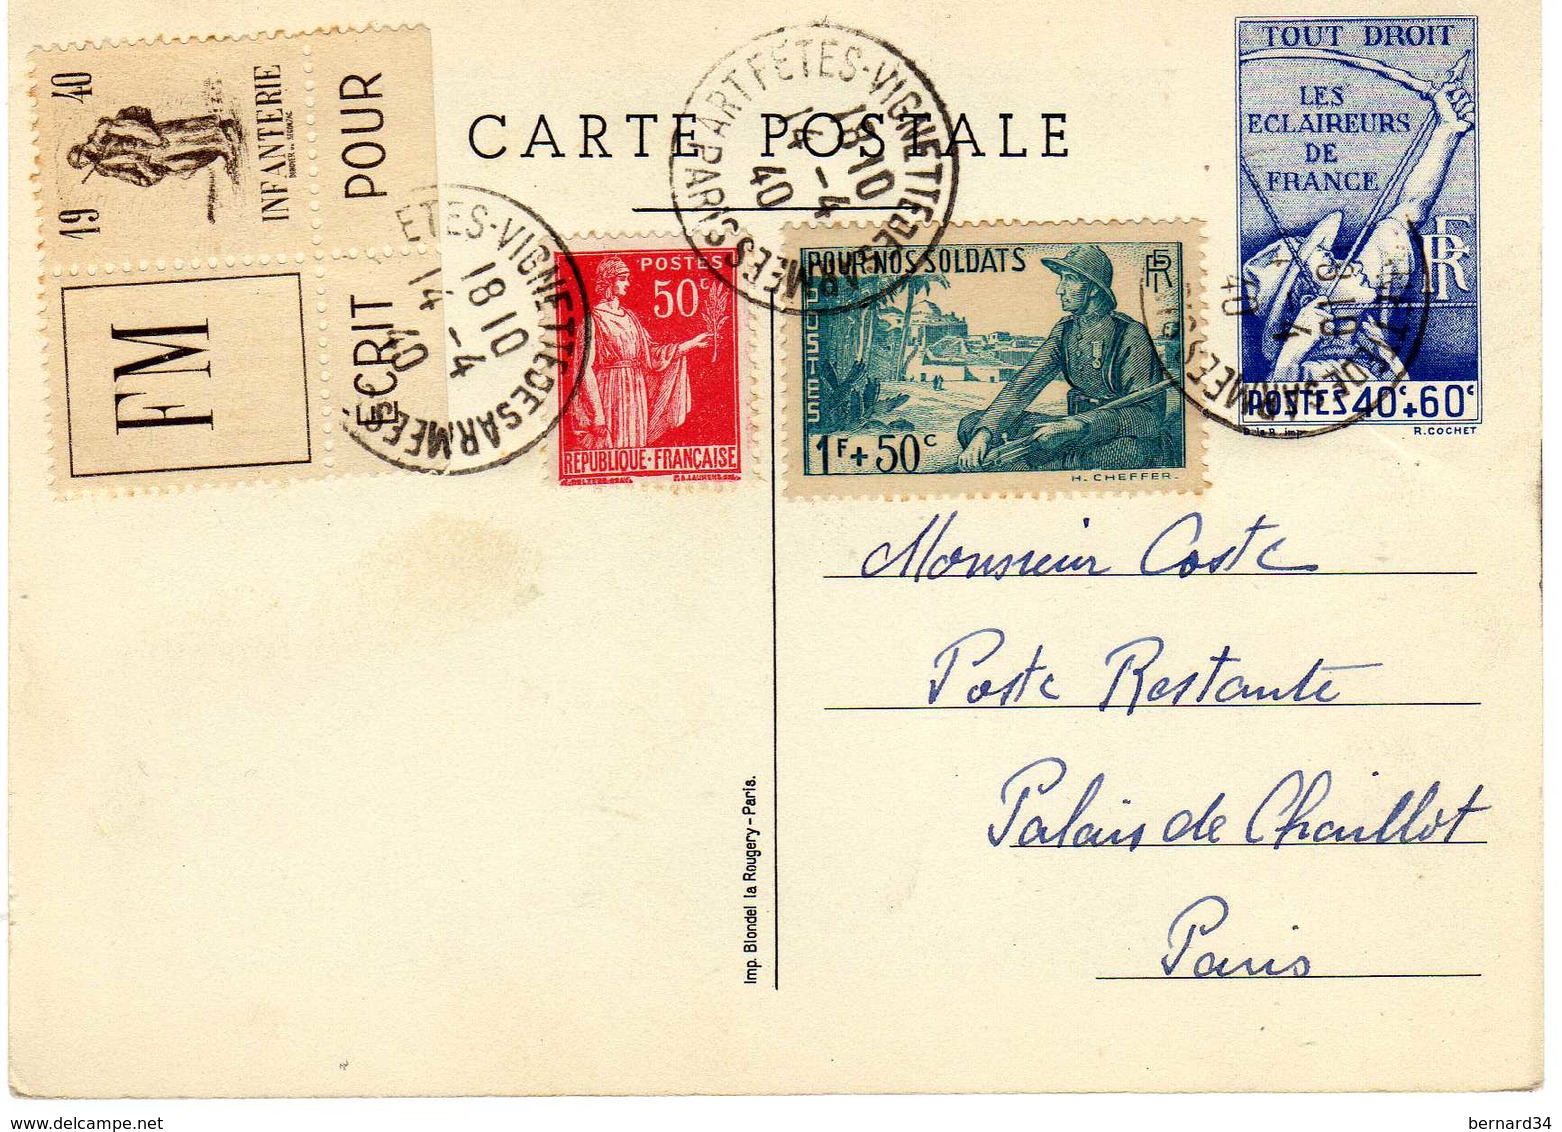 19 40
INFANTERIE
POUR
FM
ECRIT
CARTE POSTALE
PARIS ART FÊTES-VIGNETTE DES ARMÉES
18 10
14 -4
40
ETES-VIGNETTE DES ARMÉES
18 10
14 -4
40
POSTES
50c
REPUBLIQUE·FRANÇAISE
POUR NOS SOLDATS
RF
POSTES
1F+50c
H. CHEFFER.
TOUT DROIT
LES
ECLAIREURS
DE
FRANCE
RF
POSTES 40c+60c
R. COCHET
Monsieur Coste
Poste Restante
Palais de Chaillot
Paris
Imp. Blondel la Rougery - Paris.
bernard34